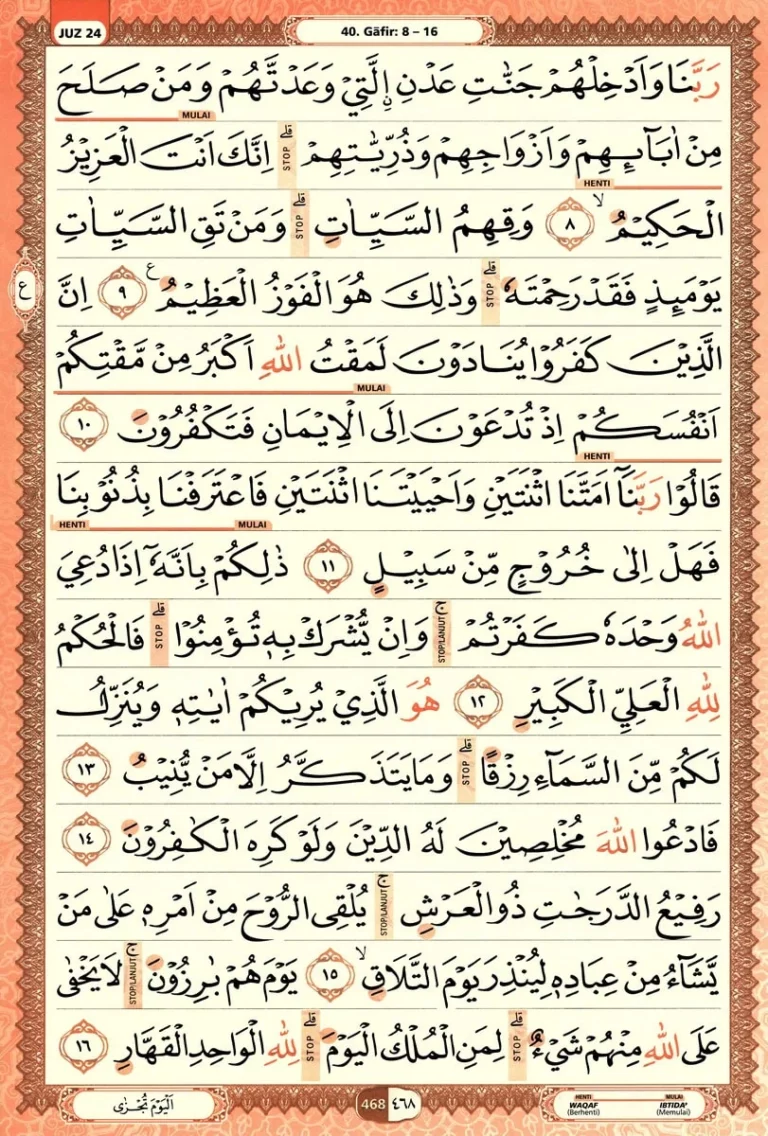 JUZ 24
40. Gāfir: 8 – 16
رَبَّنَا وَاَدْخِلْهُمْ جَنّٰتِ عَدْنِ ِۨالَّتِيْ وَعَدْتَّهُمْ وَمَنْ صَلَحَ
MULAI
مِنْ اٰبَاۤىِٕهِمْ وَاَزْوَاجِهِمْ وَذُرِّيّٰتِهِمْ ۗ STOP اِنَّكَ اَنْتَ الْعَزِيْزُ
HENTI
الْحَكِيْمُ ۙ ٨ وَقِهِمُ السَّيِّاٰتِ ۗ STOP وَمَنْ تَقِ السَّيِّاٰتِ
يَوْمَىِٕذٍ فَقَدْ رَحِمْتَهٗ ۗ STOP وَذٰلِكَ هُوَ الْفَوْزُ الْعَظِيْمُ ࣖ ٩ اِنَّ
ع
الَّذِيْنَ كَفَرُوْا يُنَادَوْنَ لَمَقْتُ اللّٰهِ اَكْبَرُ مِنْ مَّقْتِكُمْ
MULAI
اَنْفُسَكُمْ اِذْ تُدْعَوْنَ اِلَى الْاِيْمَانِ فَتَكْفُرُوْنَ ١٠
HENTI
قَالُوْا رَبَّنَآ اَمَتَّنَا اثْنَتَيْنِ وَاَحْيَيْتَنَا اثْنَتَيْنِ فَاعْتَرَفْنَا بِذُنُوْبِنَا
MULAI HENTI
فَهَلْ اِلٰى خُرُوْجٍ مِّنْ سَبِيْلٍ ١١ ذٰلِكُمْ بِاَنَّهٗٓ اِذَا دُعِيَ
اللّٰهُ وَحْدَهٗ كَفَرْتُمْ ۚ STOP/LANJUT وَاِنْ يُّشْرَكْ بِهٖ تُؤْمِنُوْا ۗ STOP فَالْحُكْمُ
لِلّٰهِ الْعَلِيِّ الْكَبِيْرِ ١٢ هُوَ الَّذِيْ يُرِيْكُمْ اٰيٰتِهٖ وَيُنَزِّلُ
لَكُمْ مِّنَ السَّمَاۤءِ رِزْقًا ۗ STOP وَمَا يَتَذَكَّرُ اِلَّا مَنْ يُّنِيْبُ ١٣
فَادْعُوا اللّٰهَ مُخْلِصِيْنَ لَهُ الدِّيْنَ وَلَوْ كَرِهَ الْكٰفِرُوْنَ ١٤
رَفِيْعُ الدَّرَجٰتِ ذُو الْعَرْشِ ۚ STOP/LANJUT يُلْقِى الرُّوْحَ مِنْ اَمْرِهٖ عَلٰى مَنْ
يَّشَاۤءُ مِنْ عِبَادِهٖ لِيُنْذِرَ يَوْمَ التَّلَاقِ ۙ ١٥ يَوْمَ هُمْ بٰرِزُوْنَ ۚ STOP/LANJUT لَا يَخْفٰى
عَلَى اللّٰهِ مِنْهُمْ شَيْءٌ ۗ STOP لِمَنِ الْمُلْكُ الْيَوْمَ ۗ STOP لِلّٰهِ الْوَاحِدِ الْقَهَّارِ ١٦
اَلْيَوْمَ تُجْزٰى
468 ٤٦٨
HENTI WAQAF (Berhenti) MULAI IBTIDA' (Memulai)